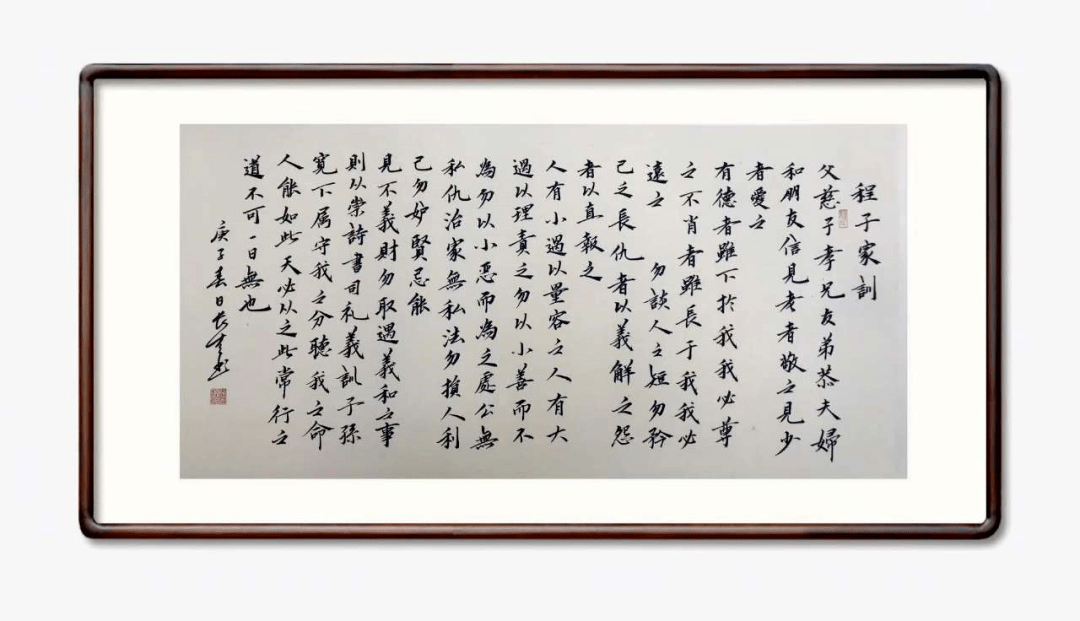 程子家訓
父慈子孝兄友弟恭夫婦
和朋友信見老者敬之見少
者愛之
有德者雖下於我我必尊
之不肖者雖長于我我必
遠之 勿談人之短勿矜
己之長仇者以義解之怨
者以直報之
人有小過以量容之人有大
過以理責之勿以小善而不
為勿以小惡而為之處公無
私仇治家無私法勿損人利
己勿妒賢忌能
見不義財勿取遇義和之事
則以崇詩書司礼義訓子孫
寬下属守我之分聽我之命
人能如此天必以之此常行之
道不可一日無也
庚子春日長